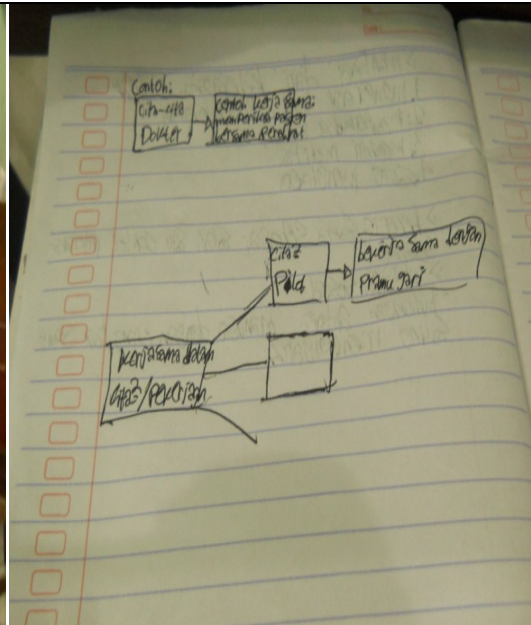 Contoh:
Cita-cita
Dokter
Contoh kerja sama:
memperiksa pasien
bersama perawat
Cita2
Pilot
bekerja sama dengan
Pramugari
Kerjasama dalam
Cita2/pekerjaan